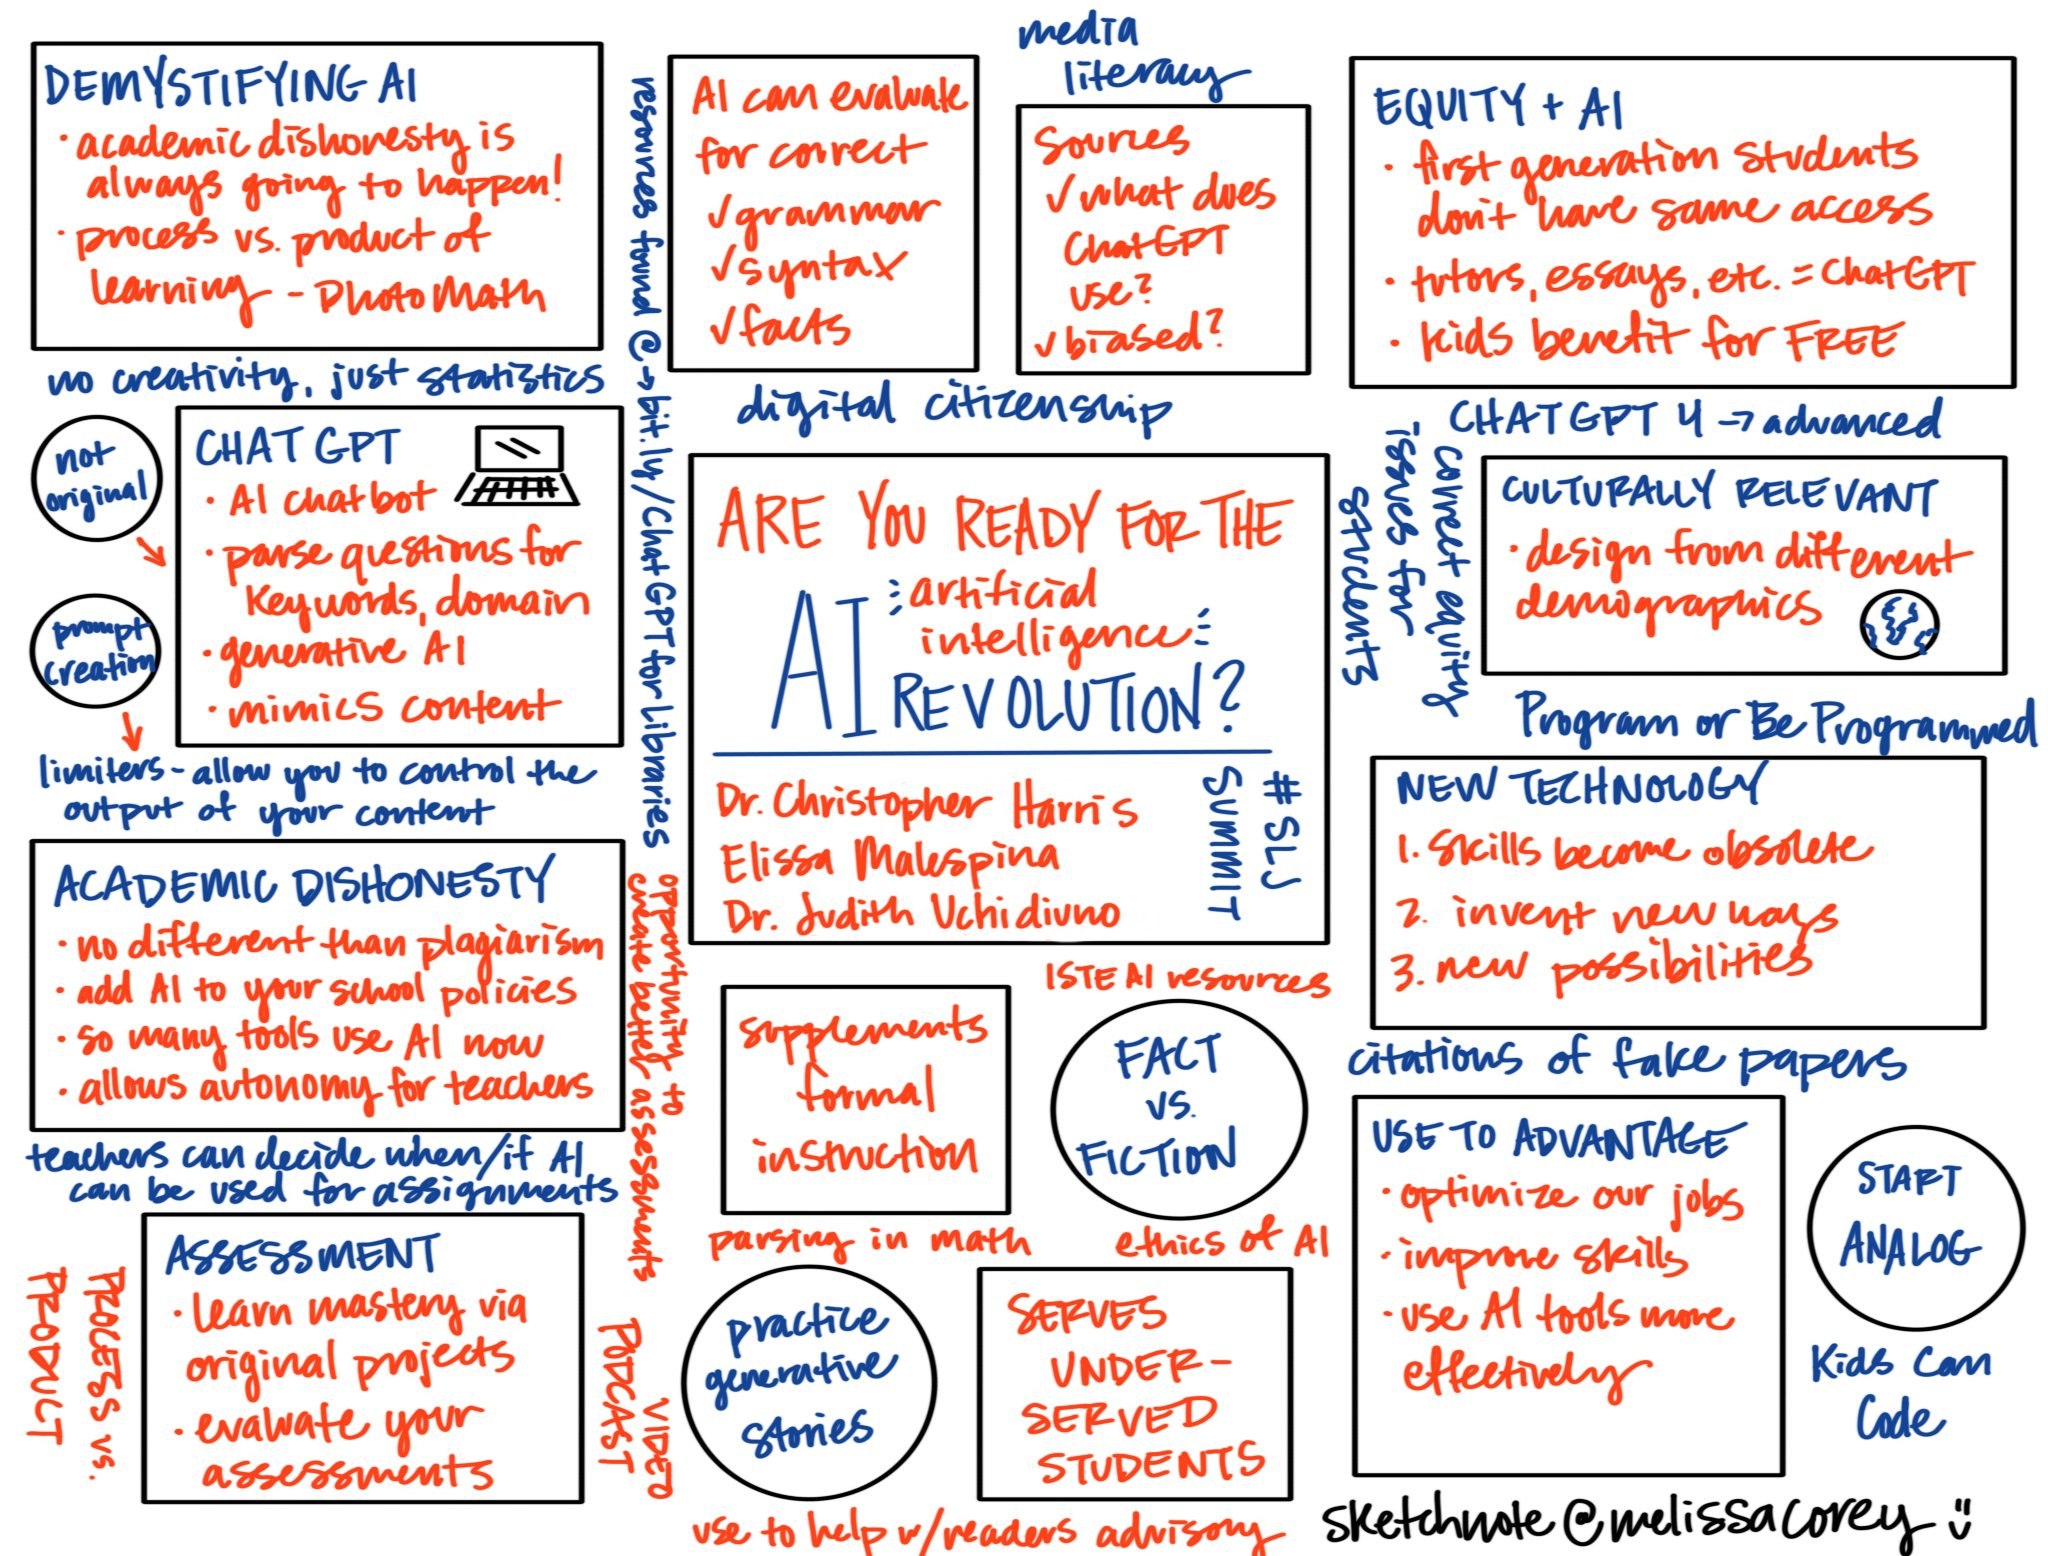 DEMYSTIFYING AI
· academic dishonesty is
always going to happen!
· process vs. product of
learning - PhotoMath
no creativity, just statistics
not
original
prompt
creation
CHAT GPT
· AI chatbot
· parse questions for
keywords, domain
· generative AI
· mimics content
limiters - allow you to control the
output of your content
ACADEMIC DISHONESTY
· no different than plagiarism
· add AI to your school policies
· so many tools use AI now
· allows autonomy for teachers
teachers can decide when/if AI
can be used for assignments
PROCESS vs.
PRODUCT
ASSESSMENT
· learn mastery via
original projects
· evaluate your
assessments
resources found @ → bit.ly/ChatGPTforLibraries
opportunity to
create better assessments
VIDEO
PODCAST
AI can evaluate
for correct
✓ grammar
✓ syntax
✓ facts
media
literacy
Sources
✓ what does
ChatGPT
use?
✓ biased?
digital citizenship
ARE YOU READY FOR THE
AI artificial
intelligence
REVOLUTION?
Dr. Christopher Harris
Elissa Malespina
Dr. Judith Uchidiuno
#SLJ
SUMMIT
supplements
formal
instruction
ISTE AI resources
FACT
vs.
FICTION
parsing in math
ethics of AI
practice
generative
stories
SERVES
UNDER-
SERVED
STUDENTS
use to help w/readers advisory
EQUITY + AI
· first generation students
don't have same access
· tutors, essays, etc. = ChatGPT
· kids benefit for FREE
CHAT GPT 4 → advanced
correct equity
issues for
students
CULTURALLY RELEVANT
· design from different
demographics
Program or Be Programmed
NEW TECHNOLOGY
1. skills become obsolete
2. invent new ways
3. new possibilities
citations of fake papers
USE TO ADVANTAGE
· optimize our jobs
· improve skills
· use AI tools more
effectively
START
ANALOG
Kids Can
Code
sketchnote @melissacorey